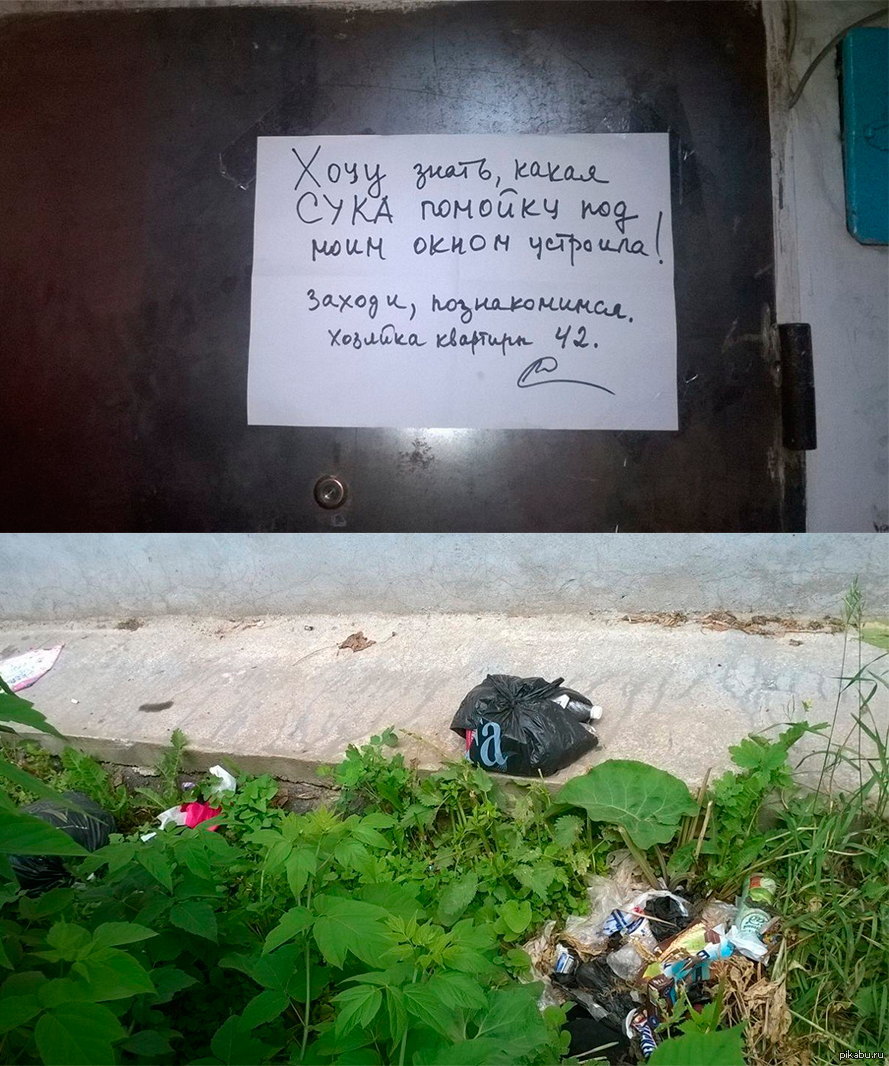 Хочу знать, какая
СУКА помойку под
моим окном устроила!
Заходи, познакомимся.
Хозяйка квартиры 42.
а
pikabu.ru